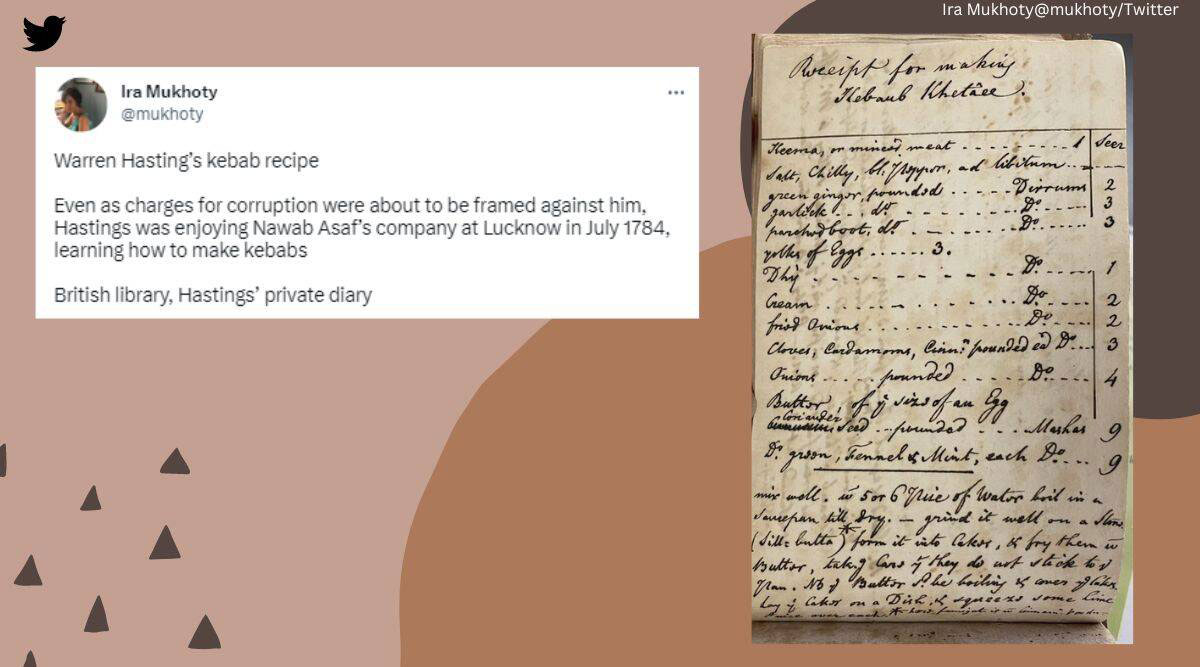 Ira Mukhoty@mukhoty/Twitter
Ira Mukhoty
@mukhoty
Warren Hasting’s kebab recipe
Even as charges for corruption were about to be framed against him,
Hastings was enjoying Nawab Asaf’s company at Lucknow in July 1784,
learning how to make kebabs
British library, Hastings’ private diary
Receipt for making
Kebaub Khetâee.
Keema, or minced meat 1 Seer
Salt, Chilly, bl. Pepper, ad libitum
green ginger, pounded Dirrums 2
garlick do Do. 3
do Do. 3
yolks of Eggs 3.
Dhy Do. 1
Cream Do 2
fried Onions Do. 2
Cloves, Cardamoms, Cinn: pounded Do 3
Onions pounded Do. 4
Butter, of ye size of an Egg
Coriander seed pounded Mashas 9
Do. green, Fennel & Mint, each Do. 9
mix well. 5 or 6 of Water boil in a
saucepan till dry. — grind it well on a
(Sill= butta)* form it into Cakes, & fry them
Butter, taking Care yt they do not stick to ye
Pan. NB ye Butter be boiling & cover ye Cakes
Lay ye Cakes on a Dish, & squeeze some lime
juice over each.